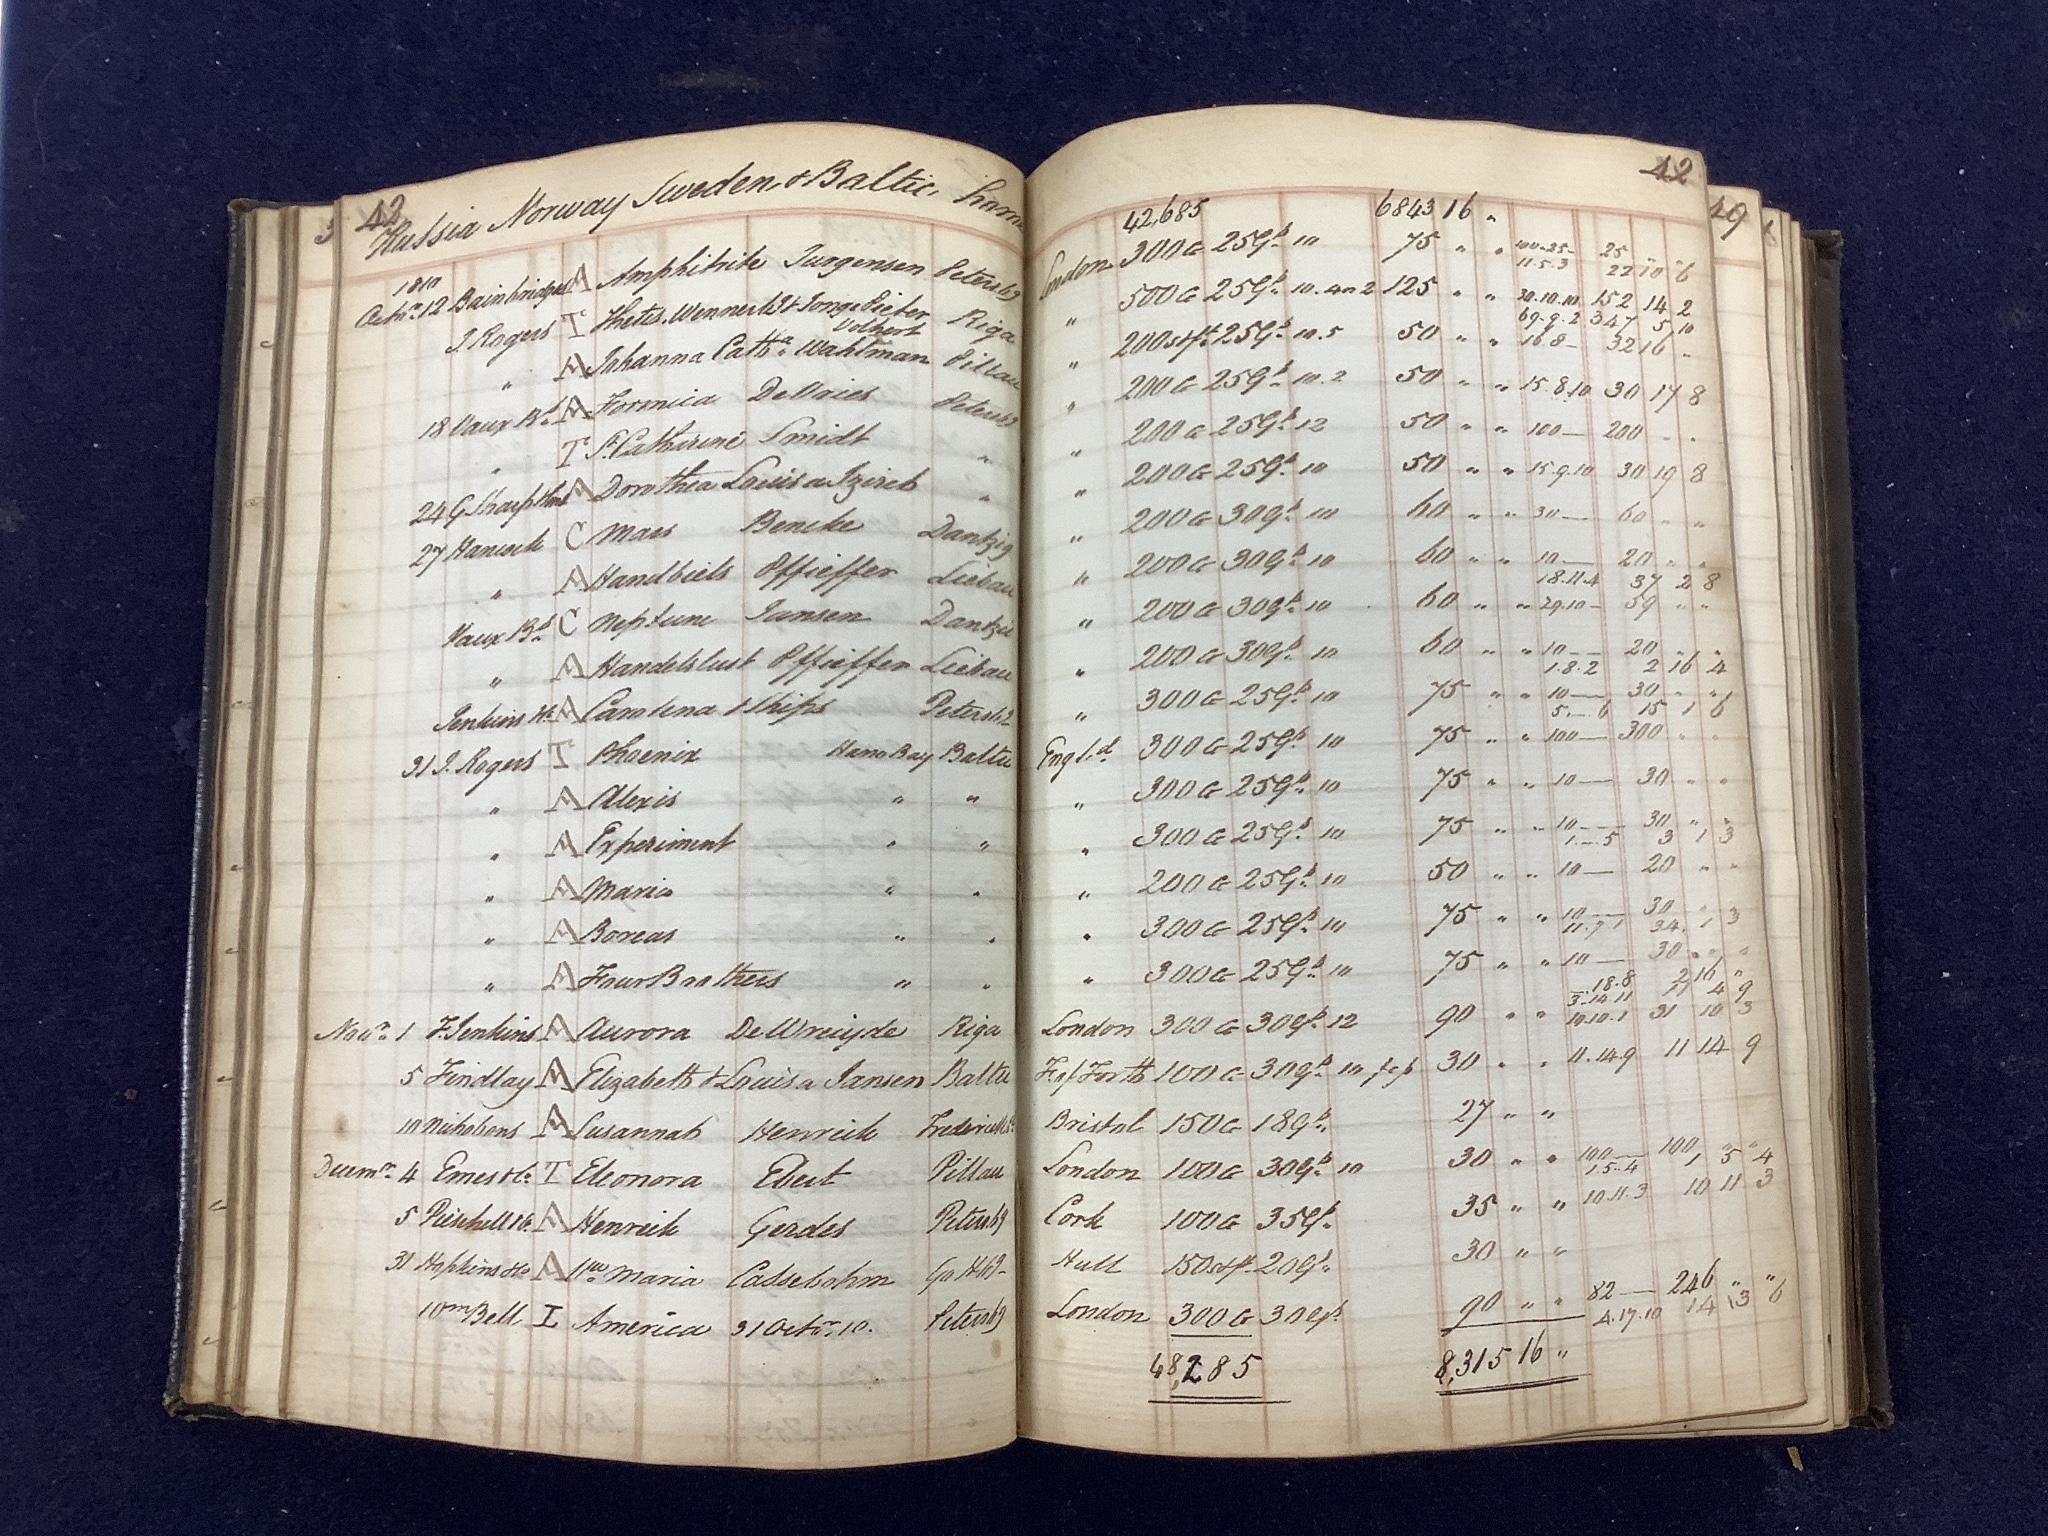 42 42
Russia Norway Sweden & Baltic, home
49
42,685 6843 16 "
1810
Octr. 12 Bainbridges A Amphitrite Jurgensen Petersbg London 300 G 25 Gs 10 75 " " 100-25- 25
11.5.3 22 10 6
J. Rogers T Thetis. Wennerbg & Jonge Pieter Volkert Riga " 500 G 25 Gs 10. 4 or 2 125 " " 30.10.10 152 14 2
69.9.2 347 5 10
" A Johanna Catha. Wahlman Pillau " 200 stg. 25 Gs 10.5 50 " " 16.8 - 32 16 "
18 Vaux Bd. A Formica DeVries Petersbg " 200 G 25 Gs 10.2 50 " " 15.8.10 30 17 8
" T St. Catharine Smidt " " 200 G 25 Gs 12 50 " " 100 — 200 " "
24 G Sharp A Dorothea Louisa " " 200 G 25 Gs 10 50 " " 15.9.10 30 19 8
27 Hancock C Maes Bencke Dantzig " 200 G 30 Gs 10 60 " " 30 — 60 " "
" A Handbiels Pffieffer Liebau " 200 G 30 Gs 10 60 " " 10 — 20 " "
18.11.4 37 2 8
Vaux Bd. C Neptune Jansen Dantzic " 200 G 30 Gs 10 60 " " 29.10 - 59 " "
" A Handelslust Pffieffer Liebau " 200 G 30 Gs 10 60 " " 10 — 20 " "
1.8.2 2 16 4
Jenkins A Carolena & Ships Petersbg " 300 G 25 Gs 10 75 " " 10 — 30 " "
5.—.6 15 1 6
31 J. Rogers T Phoenix Hano Bay Baltic Engl.d 300 G 25 Gs 10 75 " " 100 — 300 " "
" A Alexis " " " 300 G 25 Gs 10 75 " " 10 — 30 " "
" A Experiment " " " 300 G 25 Gs 10 75 " " 10 — 30 " "
1.—.5 3 1 3
" A Maria " " " 200 G 25 Gs 10 50 " " 10 — 20 " "
" A Boreas " " " 300 G 25 Gs 10 75 " " 10 — 30 " "
11.7.1 34 1 3
" A Four Brothers " " " 300 G 25 Gs 10 75 " " 10 — 30 " "
-.18.8 2 16 "
3.14.11 11 4 9
Novr. 1 F. Jenkins A Aurora London 300 G 30 Gs 12 90 " " 10.10.1 31 10 3
Riga
5 Findlay A Elizabeth & Louisa Jansen Baltic F. of Forth 100 G 30 Gs 10 30 " " 11.14.9 11 14 9
10 Nicholsons A Susannah Henrick Bristol 150 G 18 Gs 27 " "
Decemr. 4 Emes & Co T Eleonora Ebert Pillau London 100 G 30 Gs 10 30 " " 100 — 100 " "
1.5.4 1 5 4
5 Pieschell & Co. A Henrick Gerdes Petersbg Cork 100 G 35 Gs 35 " " 10.11.3 10 11 3
31 Hopkins & Co A Maria Cassebohm Hull 150 stg. 20 Gs 30 " "
Wm Bell I America 31 Octr. 10. Petersbg London 300 G 30 Gs 90 " " 82 — 246 " "
4.17.10 14 13 6
48,285 8,315 16 "